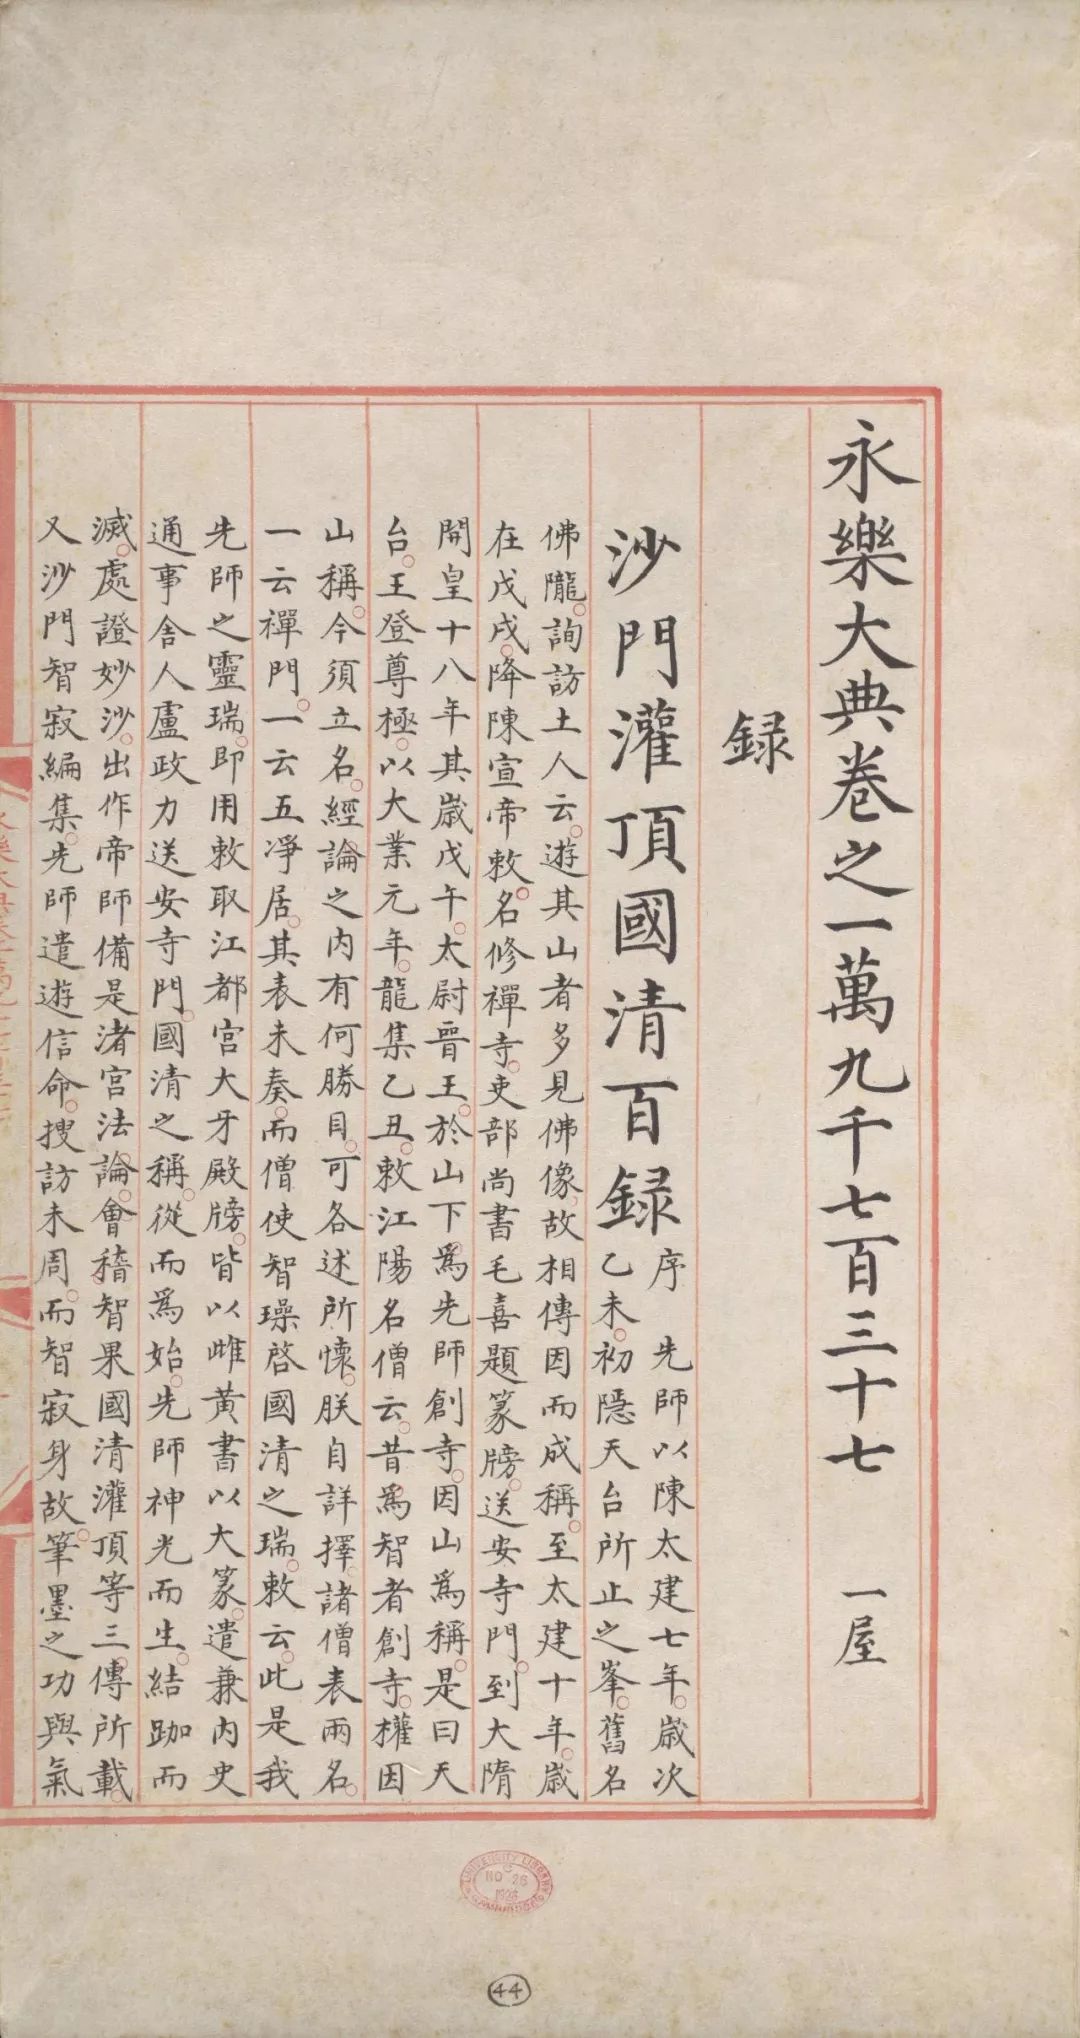 永樂大典卷之一萬九千七百三十七 一屋
録
沙門灌頂國清百録
序 先師以陳太建七年歲次
乙未初隱天台所止之峯舊名
佛隴詢訪土人云遊其山者多見佛像故相傳因而成稱至太建十年歲
在戊戌降陳宣帝敕名修禪寺吏部尚書毛喜題篆牓送安寺門到大隋
開皇十八年其歲戊午太尉晉王於山下爲先師創寺因山爲稱是曰天
台王登尊極以大業元年龍集乙丑敕江陽名僧云昔爲智者創寺權因
山稱今須立名經論之内有何勝目可各述所懷朕自詳擇諸僧表兩名
一云禪門一云五淨居其表未奏而僧使智璪啓國清之瑞敕云此是我
先師之靈瑞即用敕取江都宮大牙殿牓皆以雌黃書以大篆遣兼内史
通事舍人盧政力送安寺門國清之稱從而爲始先師神光而生結跏而
滅處證妙沙出作帝師備是渚宮法論會稽智果國清灌頂等三傳所載
又沙門智寂編集先師遣遊信命搜訪未周而智寂身故筆墨之功與氣
UNIVERSITY LIBRARY
CAMBRIDGE
44